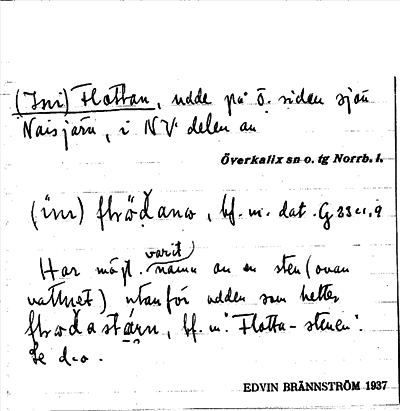 (Ini) Flottan, udde på ö. siden sjön
Naisjärn, i NV delen av
Överkalix sn o. tg Norrb. l.
(ini) , bf. m. dat. G 33 c1.9
Har möjl. varit namn av en sten (ovan
vattnet) utanför udden som heter
, bf. m. "Flotta-stenen".
Se d-o.
EDVIN BRÄNNSTRÖM 1937